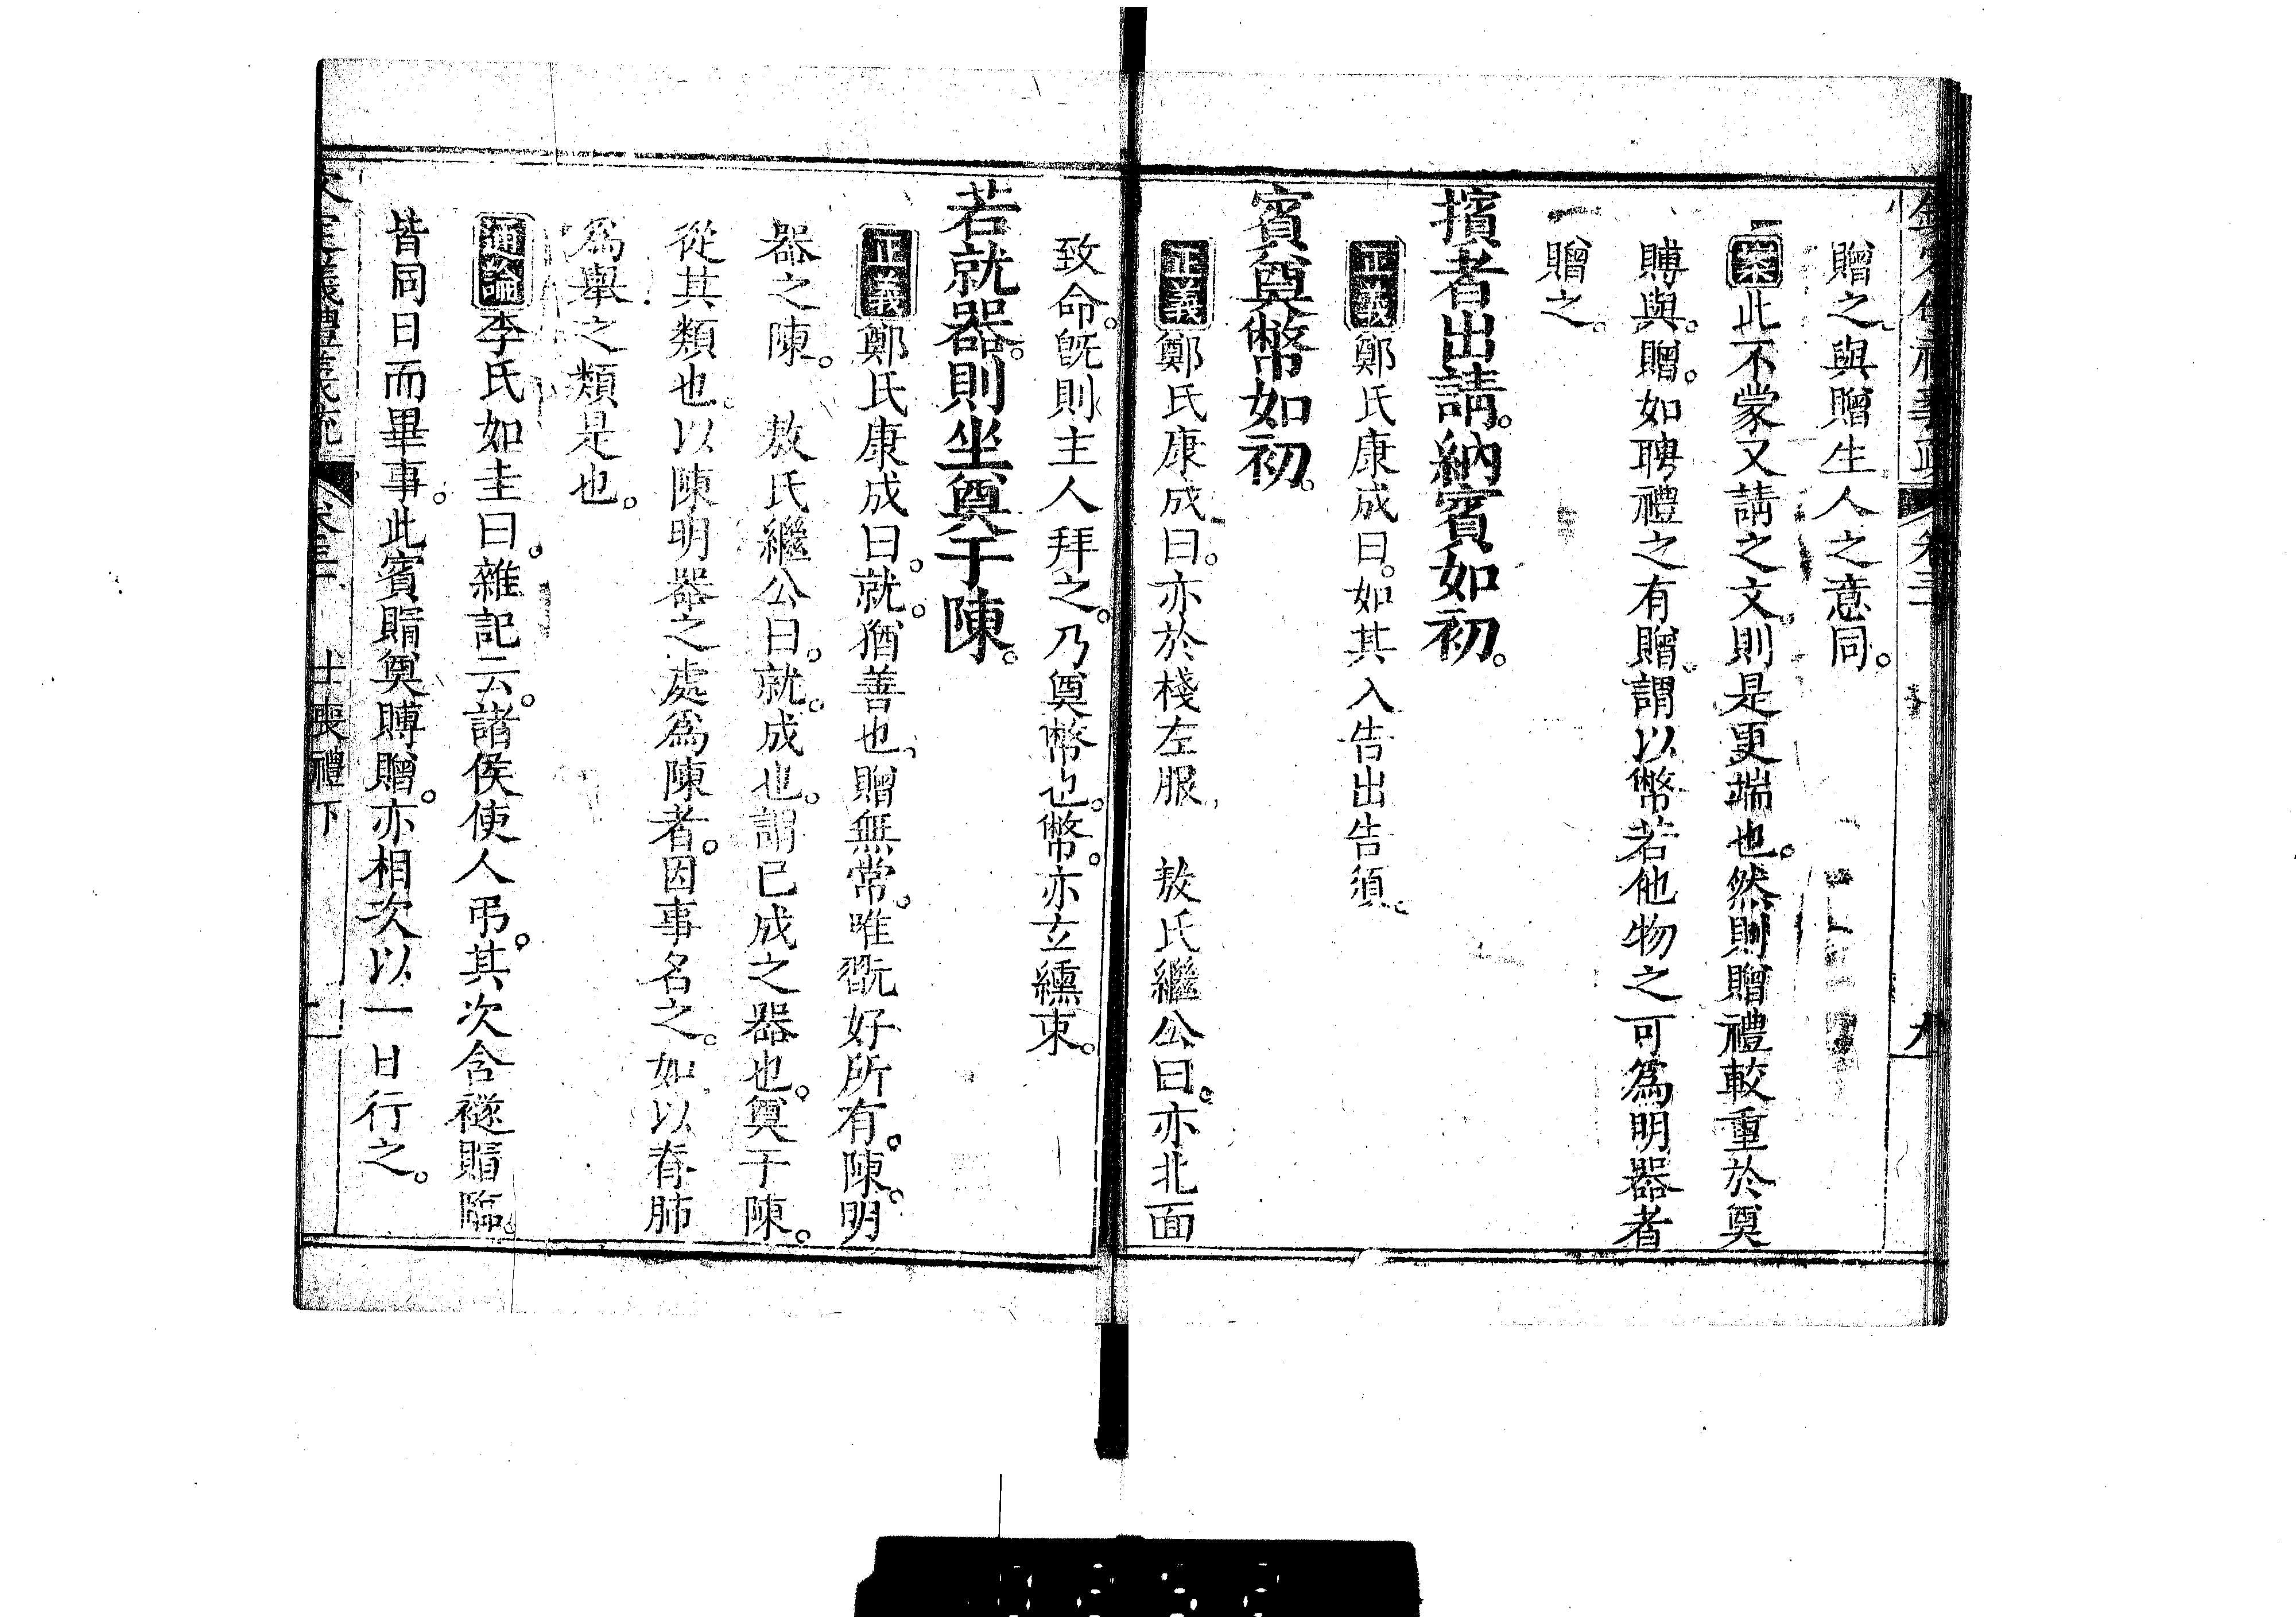 贈之。與贈生人之意同。
案此不蒙又請之文。則是更端也。然則贈禮較重於奠
賻與。贈。如聘禮之有贈。謂以幣若他物之可爲明器者
贈之。
擯者出請。納賓如初。
正義鄭氏康成曰。如其入告出告須。
賓奠幣如初。
正義鄭氏康成曰。亦於棧左服 敖氏繼公曰。亦北面
致命。旣則主人拜之。乃奠幣也。幣。亦玄纁束。
若就器。則坐奠于陳。
正義鄭氏康成曰。就。猶善也。贈無常。唯翫好所有。陳。明
器之陳。 敖氏繼公曰。就。成也。謂已成之器也。奠于陳。
從其類也。以陳明器之處爲陳者。因事名之。如以脊肺
爲舉之類是也。
通論李氏如圭曰。雜記云。諸侯使人弔。其次含襚賵臨。
皆同日而畢事。此賓賵奠賻贈。亦相次以一日行之。
士喪禮下